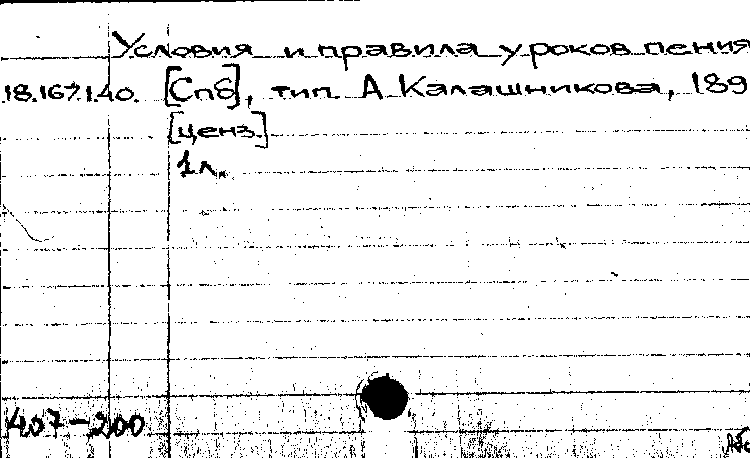 Условия и правила уроков пения
18.167.1.40. [Спб], тип. А Калашникова, 189
[ценз.]
1 л.
407-200